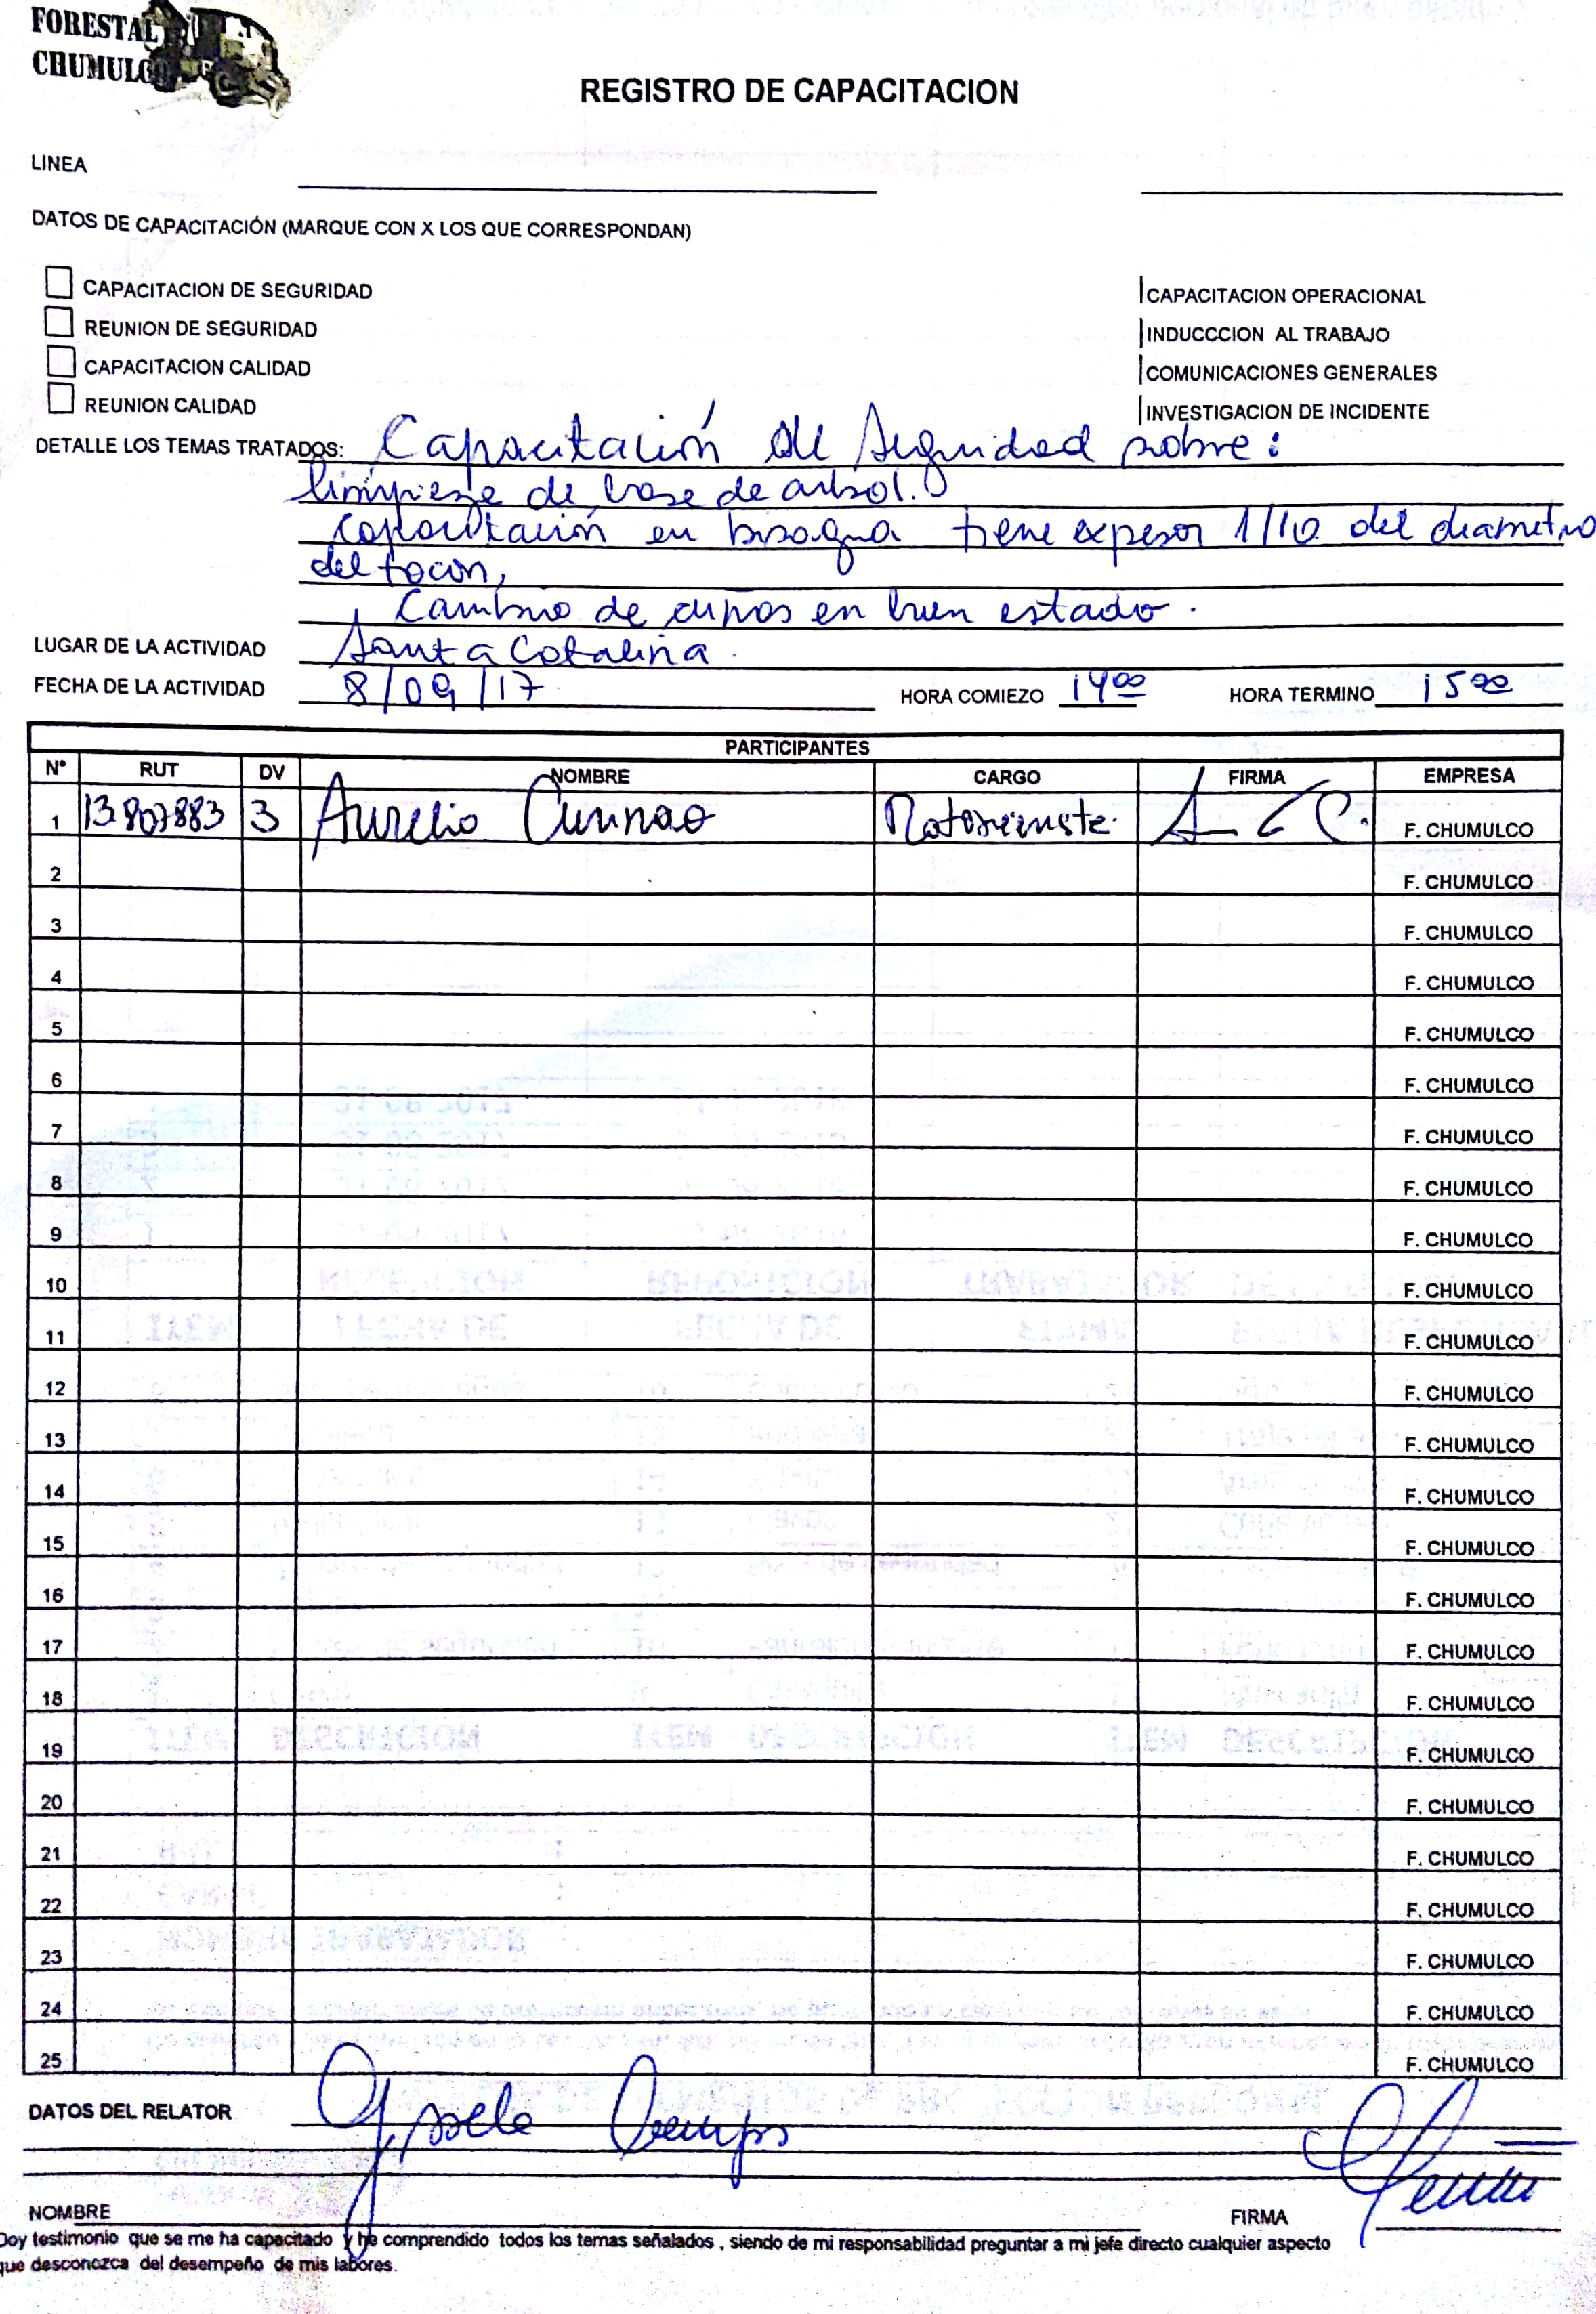 FORESTAL
CHUMULCO
REGISTRO DE CAPACITACION
LINEA
DATOS DE CAPACITACIÓN (MARQUE CON X LOS QUE CORRESPONDAN)
CAPACITACION DE SEGURIDAD CAPACITACION OPERACIONAL
REUNION DE SEGURIDAD INDUCCCION AL TRABAJO
CAPACITACION CALIDAD COMUNICACIONES GENERALES
REUNION CALIDAD INVESTIGACION DE INCIDENTE
DETALLE LOS TEMAS TRATADOS: Capacitación de Seguridad sobre:
limpieza de base de arbol.
Capacitación en bisagra tiene expesor 1/10 del diametro
del tocon,
Cambio de cuñas en buen estado.
LUGAR DE LA ACTIVIDAD Santa Catalina.
FECHA DE LA ACTIVIDAD 8/09/17 HORA COMIEZO 14 00 HORA TERMINO 15 00
PARTICIPANTES
N° RUT DV NOMBRE CARGO FIRMA EMPRESA
1 13807883 3 Aurelio Curinao Motosierrista. F. CHUMULCO
2 F. CHUMULCO
3 F. CHUMULCO
4 F. CHUMULCO
5 F. CHUMULCO
6 F. CHUMULCO
7 F. CHUMULCO
8 F. CHUMULCO
9 F. CHUMULCO
10 F. CHUMULCO
11 F. CHUMULCO
12 F. CHUMULCO
13 F. CHUMULCO
14 F. CHUMULCO
15 F. CHUMULCO
16 F. CHUMULCO
17 F. CHUMULCO
18 F. CHUMULCO
19 F. CHUMULCO
20 F. CHUMULCO
21 F. CHUMULCO
22 F. CHUMULCO
23 F. CHUMULCO
24 F. CHUMULCO
25 F. CHUMULCO
DATOS DEL RELATOR Gissela Ocampo
NOMBRE FIRMA
Doy testimonio que se me ha capacitado y he comprendido todos los temas señalados, siendo de mi responsabilidad preguntar a mi jefe directo cualquier aspecto
que desconozca del desempeño de mis labores.